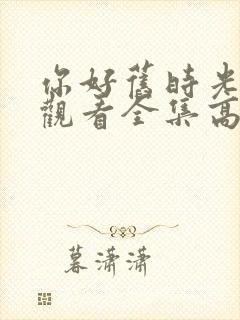 你好舊時光
觀看全集高
暮瀟瀟